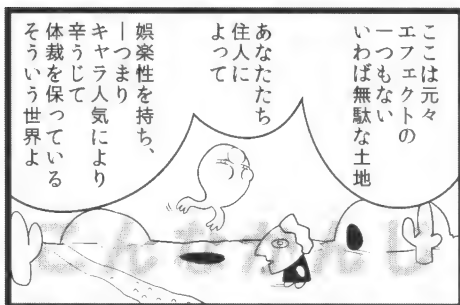 ここは元々
エフェクトの
一つもない
いわば無駄な土地
あなたたち
住人に
よって
娯楽性を持ち、
―つまり
キャラ人気により
辛うじて
体裁を保っている
そういう世界よ
こんなかんじ